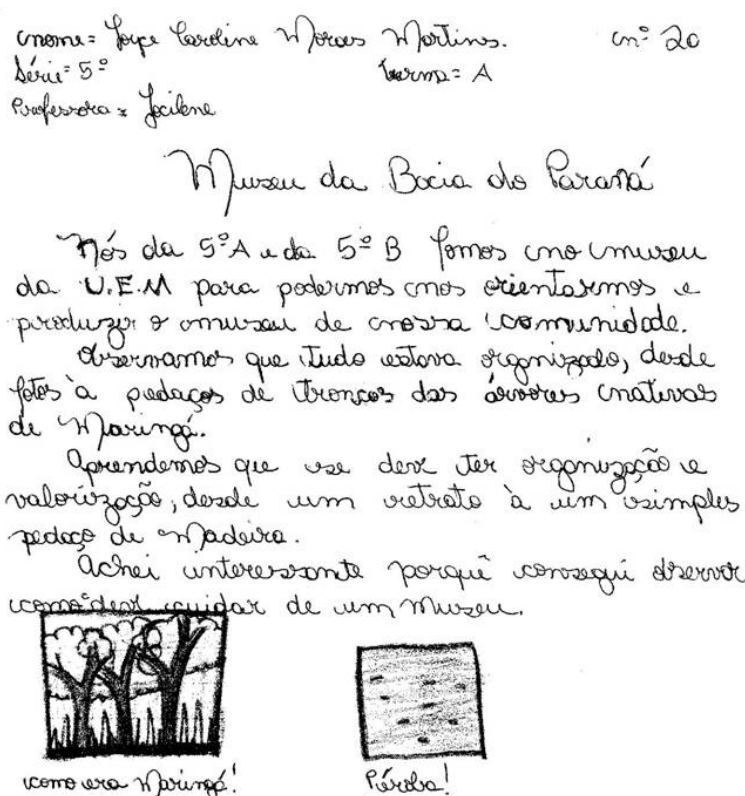 nome= Joyce Caroline Moraes Martins. nº 20
Série= 5ª turma= A
Professora = Jocilene
Museu da Bacia do Paraná
Nós da 5ª A e da 5ª B fomos no museu
da U.E.M para podermos nos orientarmos e
produzir o museu de nossa comunidade.
Observamos que tudo estava organizado, desde
fotos à pedaços de troncos das árvores nativas
de Maringá.
Aprendemos que se deve ter organização e
valorização, desde um retrato à um simples
pedaço de Madeira.
Achei interessante porquê consegui observar
como deve cuidar de um museu.
como era Maringá!
Péroba!